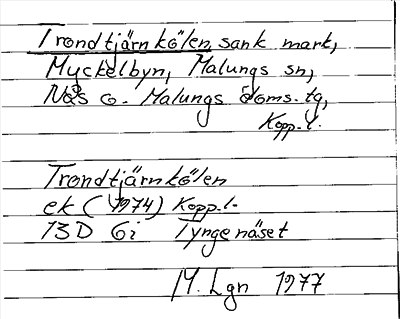 Trondtjärnkölen, sank mark,
Myckelbyn, Malungs sn,
Nås o. Malungs doms. tg,
Kopp.l.
Trondtjärnkölen
ek (1974) Kopp.l.
13D 6i Tyngenäset
M. Lgn 1977